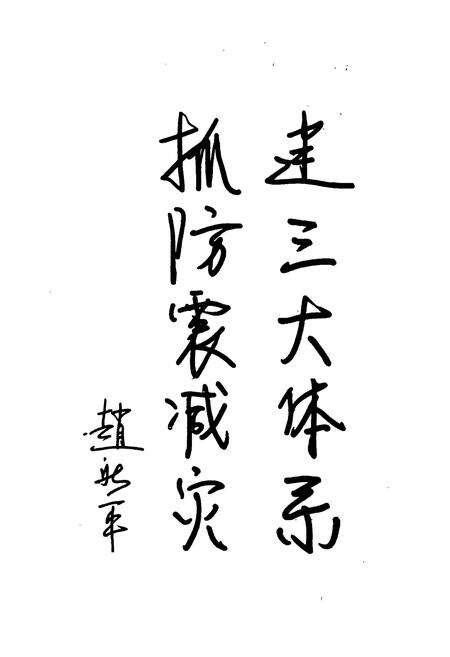 建三大体系
抓防震减灾
趙新平